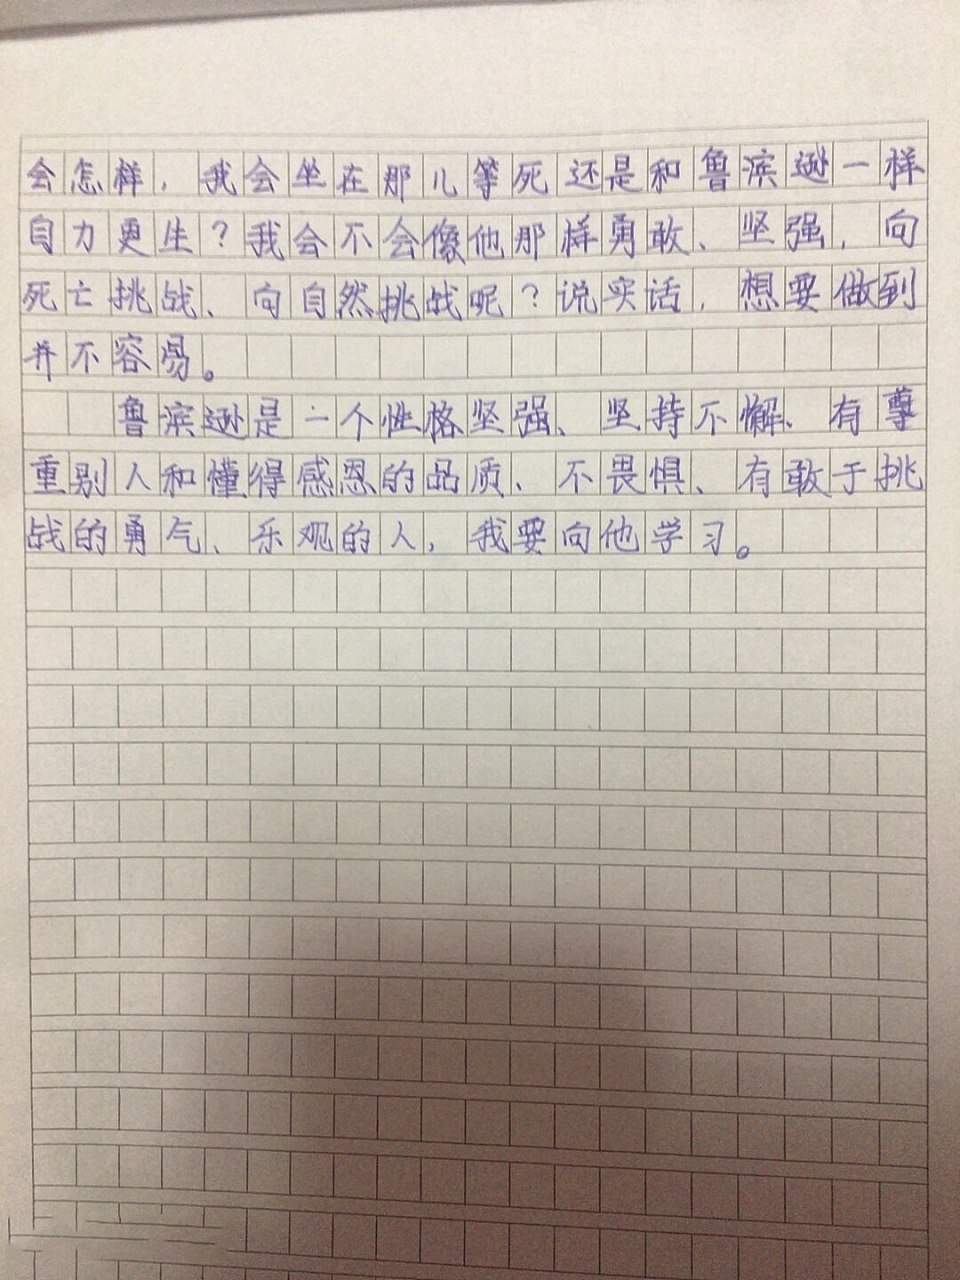 会怎样，我会坐在那儿等死还是和鲁滨逊一样
自力更生？我会不会像他那样勇敢、坚强，向
死亡挑战、向自然挑战呢？说实话，想要做到
并不容易。
鲁滨逊是一个性格坚强、坚持不懈、有尊
重别人和懂得感恩的品质、不畏惧、有敢于挑
战的勇气、乐观的人，我要向他学习。